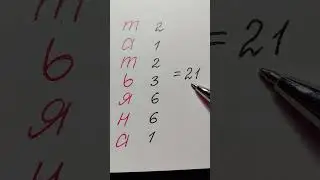 т 2
а 1
т 2
ь 3
я 6
н 6
а 1
= 21
= 21